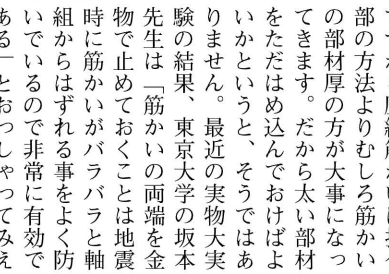 部の方法よりむしろ筋かい
の部材厚の方が大事になっ
てきます。だから太い部材
をただはめ込んでおけばよ
いかというと、そうではあ
りません。最近の実物大実
験の結果、東京大学の坂本
先生は「筋かいの両端を金
物で止めておくことは地震
時に筋かいがバラバラと軸
組からはずれる事をよく防
いでいるので非常に有効で
ある」とおっしゃってみえ